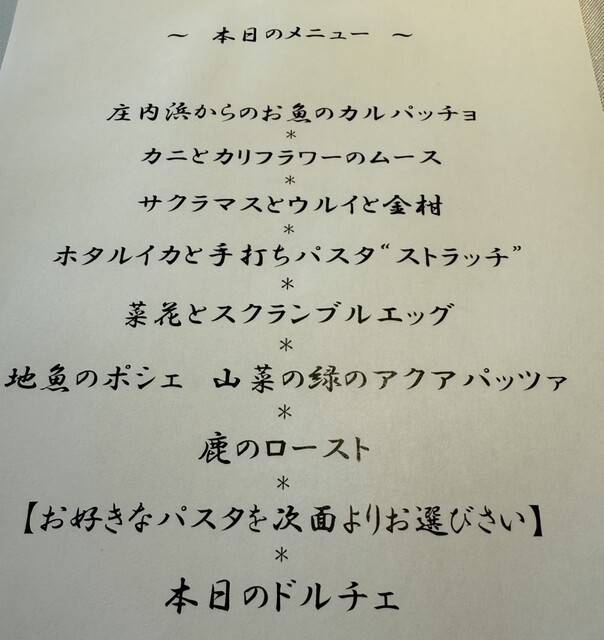 ～ 本日のメニュー ～
庄内浜からのお魚のカルパッチョ
*
カニとカリフラワーのムース
*
サクラマスとウルイと金柑
*
ホタルイカと手打ちパスタ“ストラッチ”
*
菜花とスクランブルエッグ
*
地魚のポシェ 山菜の緑のアクアパッツァ
*
鹿のロースト
*
【お好きなパスタを次面よりお選びさい】
*
本日のドルチェ